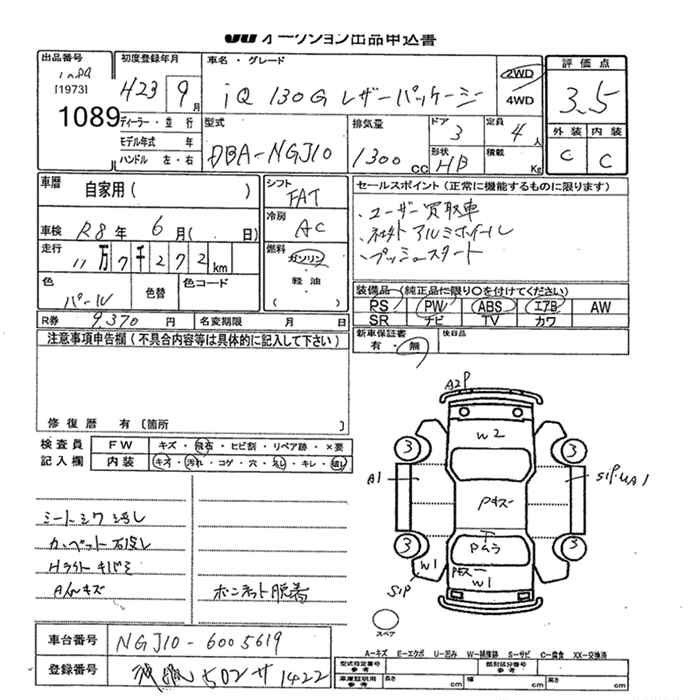 オークション出品申込書
出品番号 初度登録年月 車名・グレード 評価点
[1973] 423 9月 iQ 130G レザーパッケージ 2WD 4WD 3.5
1089
ディーラー・並行 型式 排気量 ドア 定員 外装 内装
モデル年式 年 DBA-NGJ10 1300cc 3 4人 C C
ハンドル 左・右 形状 HB 積載 Kg
車歴 自家用( ) シフト FAT セールスポイント(正常に機能するものに限ります)
車検 R8年 6月( 日) 冷房 AC ・ユーザー買取車
走行 11万7千272km 燃料 ガソリン ・社外アルミホイール
軽油 ( ) ・プッシュスタート
色 パール 色替 色コード
装備品(純正品に限り○を付けてください)
PS PW ABS エアB AW
SR ナビ TV カワ
R券 9,370円 名変期限 月 日
新車保証書 有・無 後日品
注意事項申告欄(不具合内容等は具体的に記入して下さい)
修復歴 有[箇所 ]
検査員 FW キズ・飛石・ヒビ割・リペア跡・×要
記入欄 内装 キズ・汚れ・コゲ・穴・・キレ・
A2 P
W2
3 3
A1 Pキズー A1
3 3
Pムラ
W1 Pキズー W1
S1P
シートシワ
カーペット
Hライトキバミ
キズ ボンネット脱着
スペア
車台番号 NGJ10-6005619
登録番号 502 サ 1422
A-キズ E-エクボ U-凹み W-補修跡 S-サビ C-腐食 XX-交換済
型式指定番号 参考 類別区分番号 参考
車庫証明用 参考 長さ cm 幅 cm 高さ cm